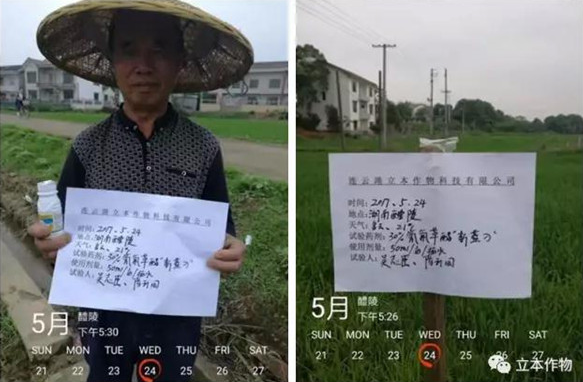 连云港立本作物科技有限公司
时间: 2017.5.24
地点: 湖南醴陵
天气: 多云, 21℃
试验药剂: 30%氰氟草酯"新查刀"
使用剂量: 50ml/
试验人: 吴志臣、
5月
醴陵
下午5:30
SUN MON TUE WED THU FRI SAT
21 22 23 24 25 26 27
连云港立本作物科技有限公司
时间: 2017.5.24
地点: 湖南醴陵
天气: 多云, 21℃
试验药剂: 30%氰氟草酯"新查刀"
使用剂量: 50ml/
试验人: 吴志臣、
5月
醴陵
下午5:26
SUN MON TUE WED THU FRI SAT
21 22 23 24 25 26 27
立本作物